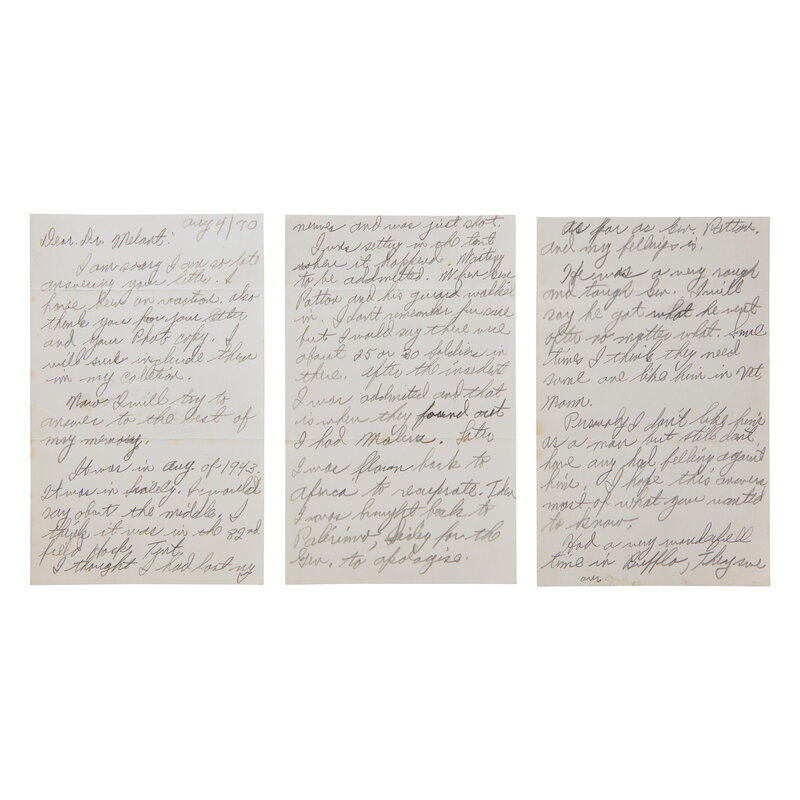 Aug 4/70
Dear Dr. Melant:
I am sorry I am so late
answering your letter. I
have been on vaction, also
thank you for your letter
and your Phot copy. I
will sure include them
in my colletion.
Now I will try to
answer to the best of
my memory.
It was in Aug. of 1943.
It was in I would
say about the middle. I
think it was in the 93nd
field Hosp. Tent,
I thought I had lost my
nerves and was just shot.
I was setting in the tent
when it happend. Waiting
to be addmitted. When Gen
Patton and his guard walked
in. I dont remember for sure
but I would say there were
about 25 or 30 Soldiers in
there. After the insedent
I was addmited and that
is when they found out
I had Maleria. Later
I was flown back to
Africa to recuperate. Then
I was brought back to
Palirimo, Sisley for the
Gen. to apologise.
as far as Gen. Patton.
and my fellings is.
He was a very rough
and tough Gen. I will
say he got what he went
after no matter what. Some
times I think they need
some one like him in Vet
Namm.
Persnaly I don't like him
as a man but still don't
have any bad felling againt
him. I hope this answers
most of what you wanted
to know.
Had a very wonderfell
time in Bufflo, They sure
over.